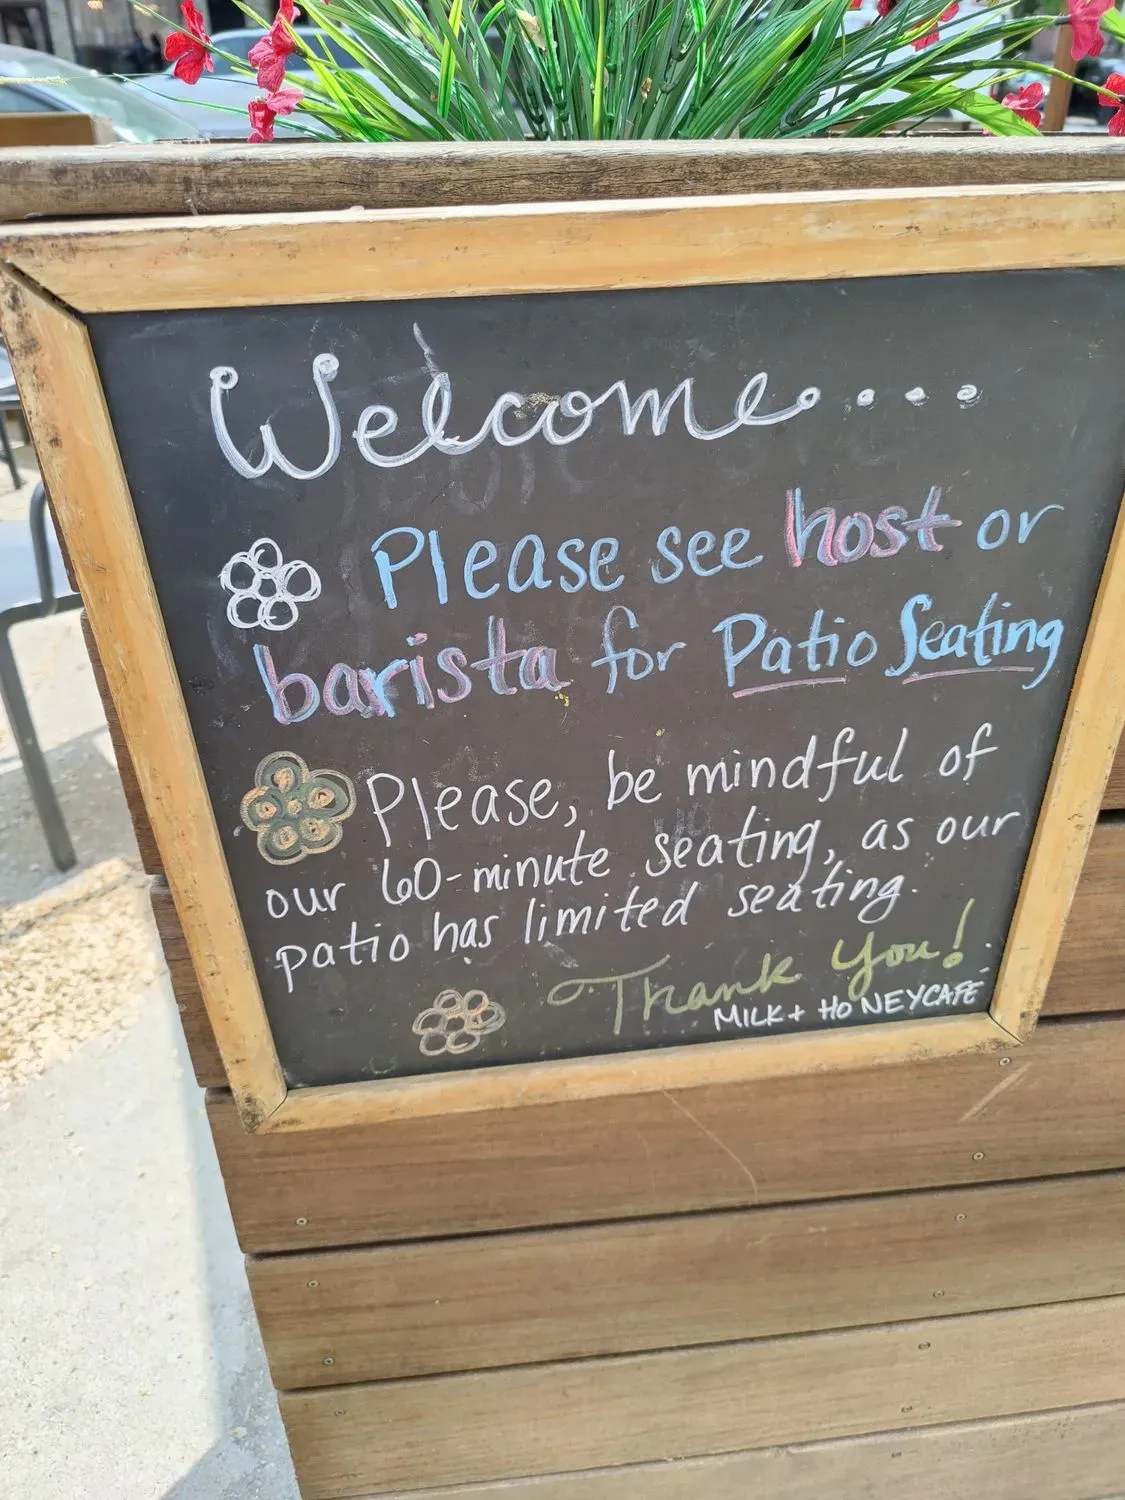 Welcome....
Please see host or
barista for Patio Seating
Please, be mindful of
our 60-minute seating, as our
patio has limited seating.
Thank You!
MILK + HONEY CAFE